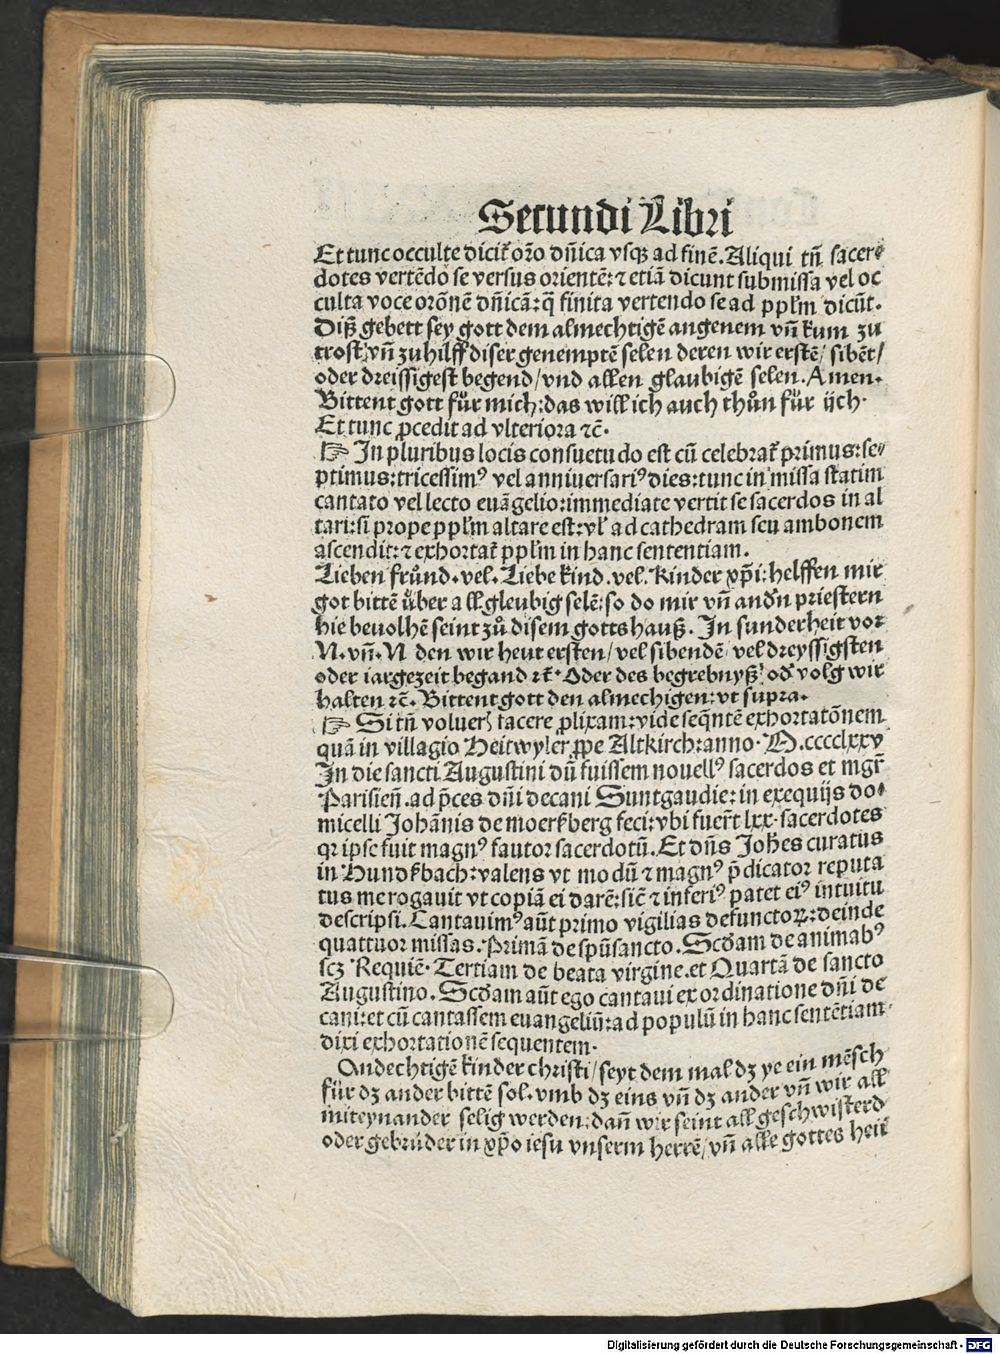 Secundi Libri
Et tunc occulte dicit᷑ oro̅ dn̅ica vsqꝫ ad fine̅. Aliqui tn̅ sacer⸗
dotes verte̅do se versus oriente̅: ⁊ etia̅ dicunt submissa vel oc
culta voce oro̅ne̅ dn̅ica̅: q̅ finita vertendo se ad pplʼm dicu̅t.
Diß gebett sey gott dem almechtige̅ angenem vn̅ kum zu
trost vn̅ zu hilff diser genempte̅ selen deren wir erste̅/ sibe̅t/
oder dreissigest begend/ vnd allen glaubige̅ selen. Amen.
Bittent gott fuͤr mich: das will ich auch thuͦn fuͤr üch.
Et tunc ꝓcedit ad vlteriora ⁊c̅.
☞ In pluribus locis consuetudo est cu̅ celebrat᷑ primus: se⸗
ptimus: tricessimꝰ vel anniuersariꝰ dies: tunc in missa statim
cantato vel lecto eua̅gelio: immediate vertit se sacerdos in al
tari: si prope pplʼm altare est: vlʼ ad cathedram seu ambonem
ascendit: ⁊ exhortat᷑ pplʼm in hanc sententiam.
Lieben fruͤnd. vel. Liebe kind. vel. Kinder xp̅i: helffen mir
got bitte̅ uͤber all gleubig sele̅: so do mir vn̅ andn̅ priestern
hie beuolhe̅ seint zuͦ disem gotts hauß. In sunderheit vor
N. vn̅. N den wir heut ersten/ vel sibende̅ vel dreyssigsten
oder iargezeit begand ⁊c̅. Oder des begrebnyß/ od̕ volg wir
halten ⁊c̅. Bittent gott den almechigen: vt supra.
☞ Si tn̅ voluer̕ facere ꝓlixam: vide seq̅nte̅ exhortato̅nem
qua̅ in villagio Heitwyler ꝓpe Altkirch: anno. M.cccclxxv
In die sancti Augustini du̅ fuissem nouellꝰ sacerdos et mgr̅
Parisien̅. ad p̅ces dn̅i decani Suntgaudie: in exequijs do⸗
micelli Joha̅nis de moerk̕berg feci: vbi fuer̅t lxx. sacerdotes
qr ipse fuit magnꝰ fautor sacerdotu̅. Et dn̅s Joh̅es curatus
in Hundk̕bach: valens vt modu̅ ⁊ magnꝰ p̅dicator reputa
tus me rogauit vt copia̅ ei dare̅: sic̅ ⁊ inferiꝰ patet eiꝰ intuitu
descripsi. Cantauimꝰ au̅t primo vigilias defunctoꝝ: deinde
quattuor missas. Prima̅ de spu̅sancto. Scd̅am de animabꝰ
scꝫ Requie̅. Tertiam de beata virgine. et Quarta̅ de sancto
Augustino. Scd̅am au̅t ego cantaui ex ordinatione dn̅i de
cani: et cu̅ cantassem euangeliu̅: ad populu̅ in hanc sente̅tiam
dixi exhortatione̅ sequentem.
Andechtige̅ kinder christi/ seyt dem mal dꝫ ye ein me̅sch
für dꝫ ander bitte̅ sol. vmb dꝫ eins vn̅ dꝫ ander vn̅ wir all
miteynander selig werden: dan̅ wir seint all geschwisterd
oder gebruͤder in xp̅o iesu vnserm herre̅/ vn̅ alle gottes heil
Digitalisierung gefördert durch die Deutsche Forschungsgemeinschaft - DFG